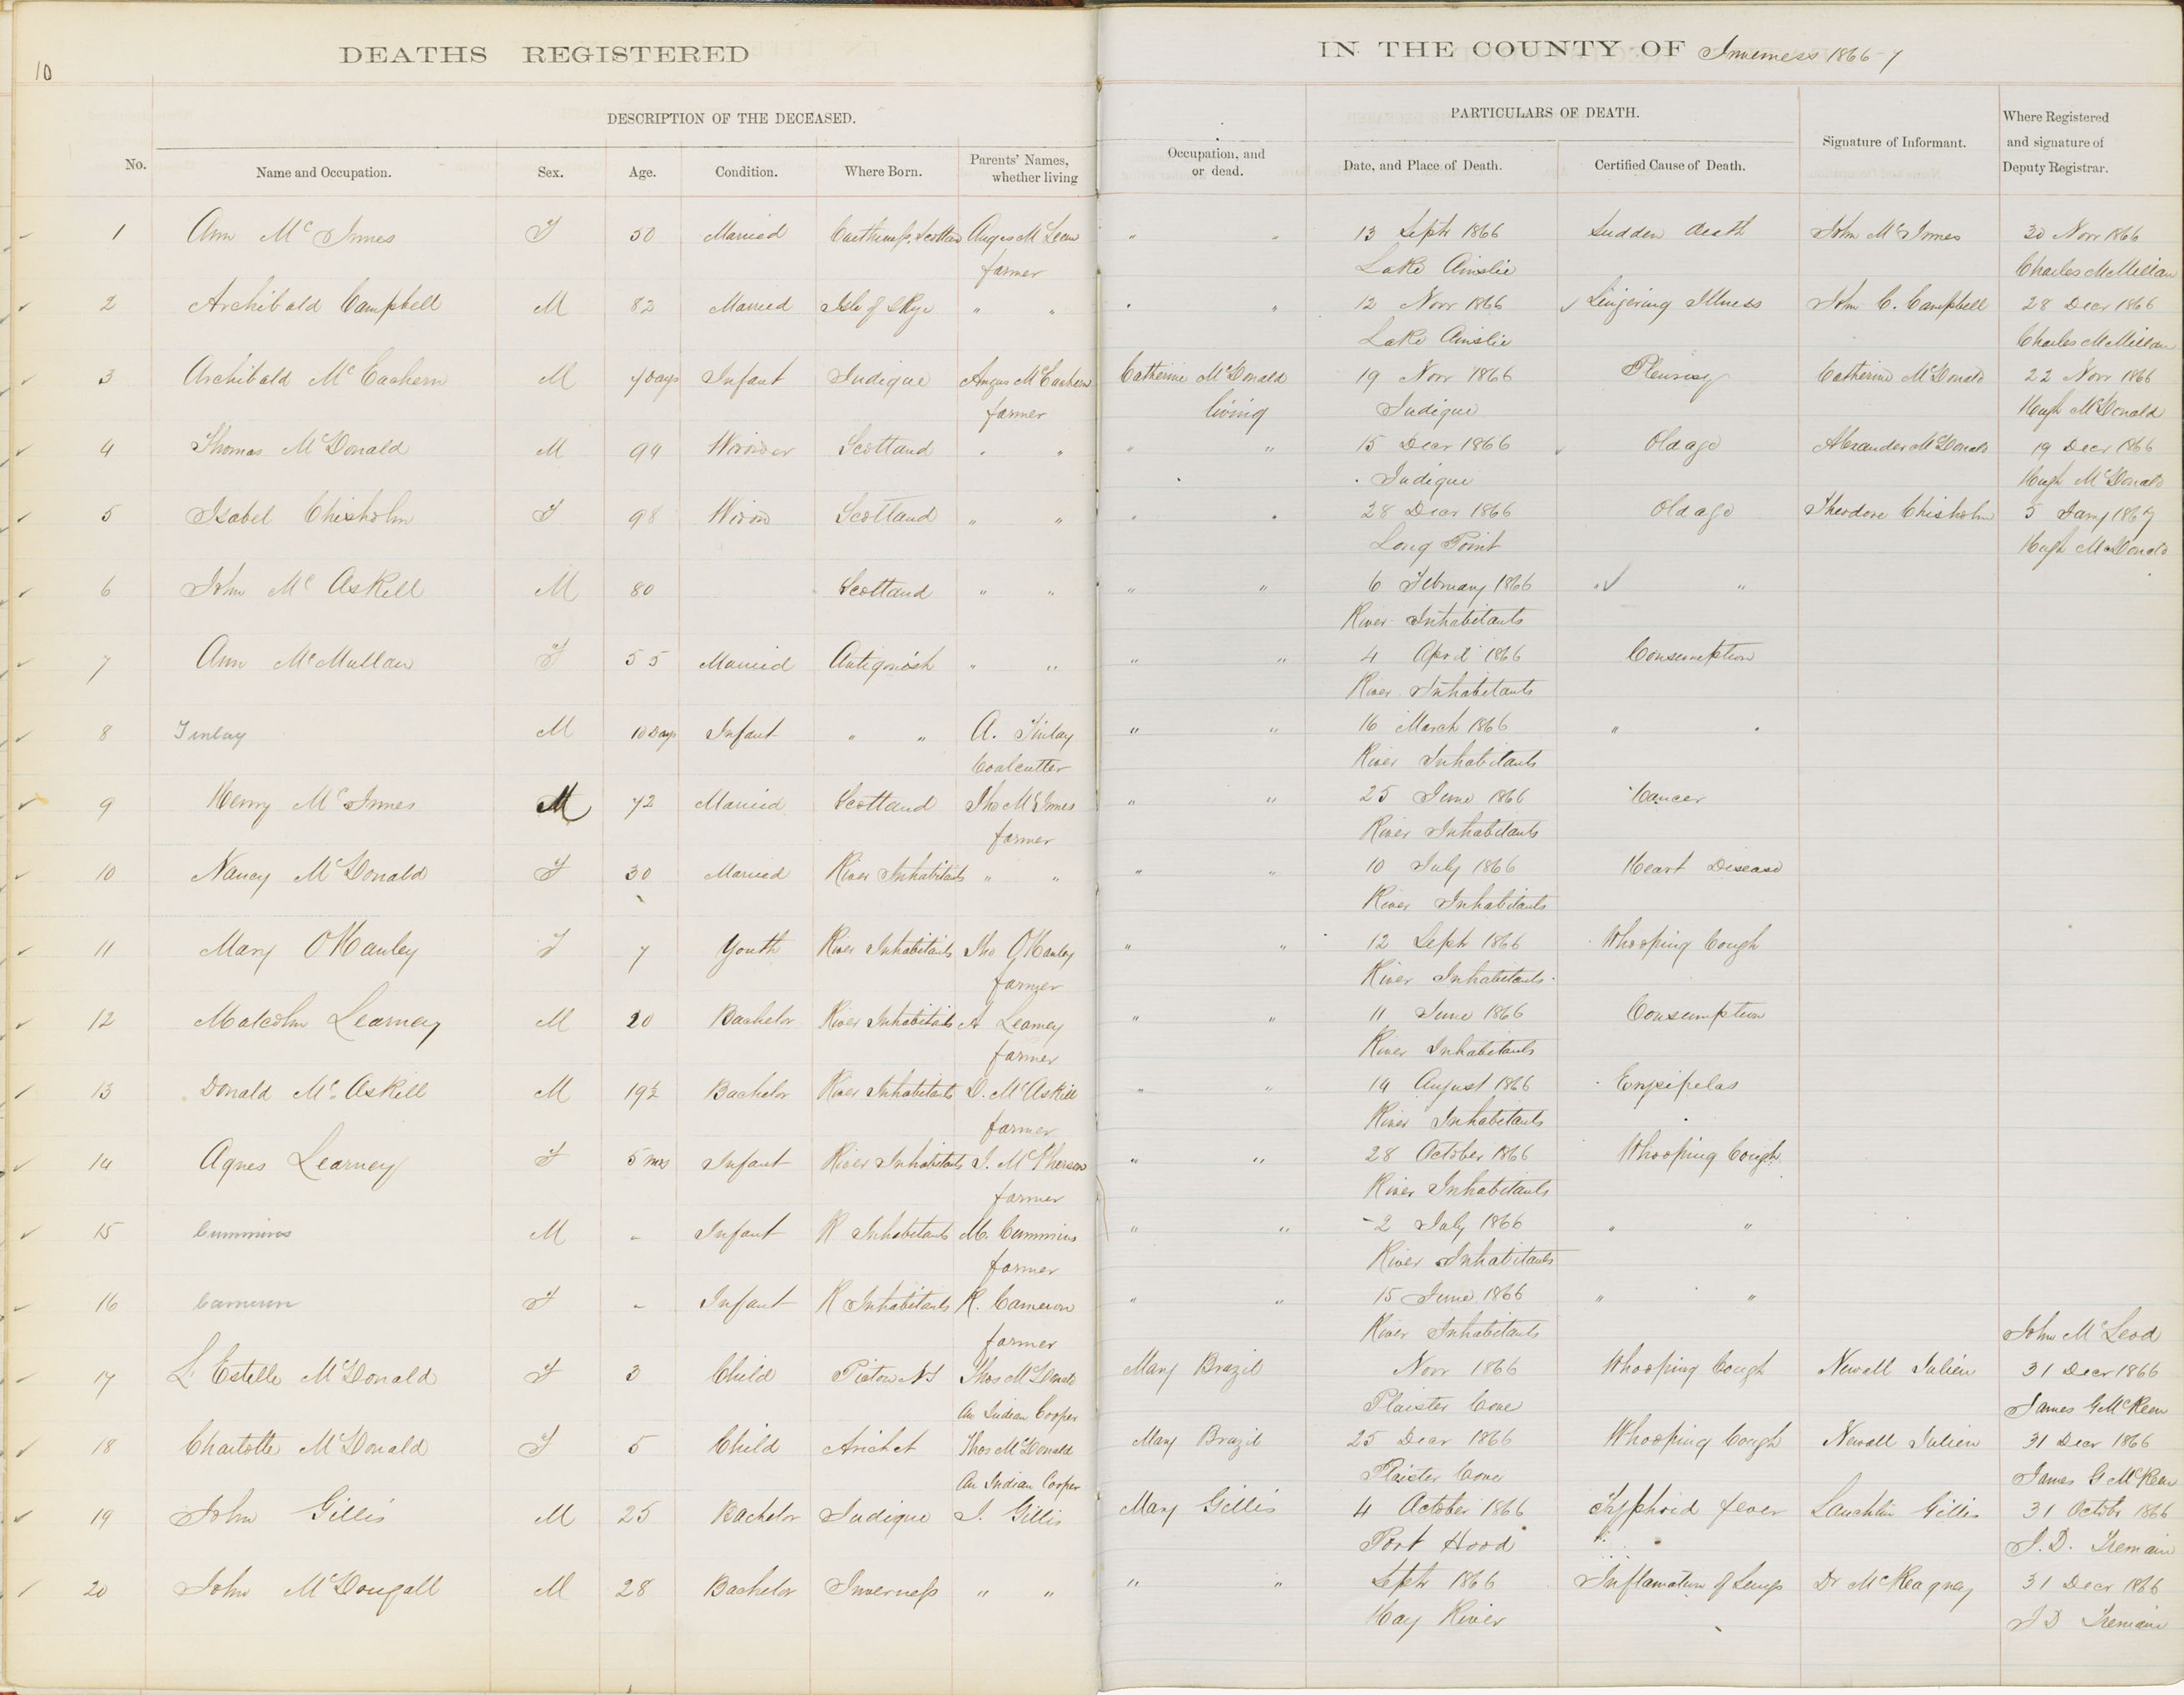 10
DEATHS REGISTERED IN THE COUNTY OF Inverness 1866-7
DESCRIPTION OF THE DECEASED. PARTICULARS OF DEATH.
No. Name and Occupation. Sex. Age. Condition. Where Born. Parents' Names, whether living Occupation, and or dead. Date, and Place of Death. Certified Cause of Death. Signature of Informant. Where Registered and signature of Deputy Registrar.
1 Ann McInnes F 50 Married Caithness, Scotland Angus McLean " " 13 Septr 1866 Sudden death John McInnes 30 Novr 1866
farmer Lake Ainslie Charles McMillan
2 Archibald Campbell M 82 Married Isle of Skye " " " " 12 Novr 1866 Lingering Illness John C. Campbell 28 Decr 1866
Lake Ainslie Charles McMillan
3 Archibald McEachern M 7 days Infant Judique Angus McEachern Catherine McDonald 19 Novr 1866 Pleurisy Catherine McDonald 22 Novr 1866
farmer living Judique Hugh McDonald
4 Thomas McDonald M 94 Widower Scotland " " " " 15 Decr 1866 Old age Alexander McDonald 19 Decr 1866
Judique Hugh McDonald
5 Isabel Chisholm F 98 Widow Scotland " " " " 28 Decr 1866 Old age Theodore Chisholm 5 Jany 1867
Long Point Hugh McDonald
6 John McAskill M 80 Scotland " " " " 6 February 1866 " "
River Inhabitants
7 Ann McMullan F 55 Married Antigonish " " " " 4 April 1866 Consumption
River Inhabitants
8 Finlay M 10 Days Infant " " A. Finlay " " 16 March 1866 " "
Coalcutter River Inhabitants
9 Henry McInnes M 72 Married Scotland Jho McInnes " " 25 June 1866 Cancer
farmer River Inhabitants
10 Nancy McDonald F 30 Married River Inhabitants " " " " 10 July 1866 Heart Disease
River Inhabitants
11 Mary O'Hanley F 7 Youth River Inhabitants Jho O'Hanley " " 12 Septr 1866 Whooping Cough
farmer River Inhabitants
12 Malcolm Learney M 20 Bachelor River Inhabitants A Learney " " 11 June 1866 Consumption
farmer River Inhabitants
13 Donald McAskill M 19½ Bachelor River Inhabitants D. McAskill " " 14 August 1866 Erysipelas
farmer River Inhabitants
14 Agnes Learney F 5 mos Infant River Inhabitants J. McPherson " " 28 October 1866 Whooping Cough
farmer River Inhabitants
15 Cummins M - Infant R Inhabitants M. Cummins " " 2 July 1866 " "
farmer River Inhabitants
16 Cameron F - Infant R Inhabitants R. Cameron " " 15 June 1866 " "
farmer River Inhabitants John McLeod
17 L. Estelle McDonald F 3 Child Pictou NS Thos McDonald Mary Brazil Novr 1866 Whooping Cough Newall Julien 31 Decr 1866
An Indian Cooper Plaister Cove James G McKeen
18 Charlotte McDonald F 5 Child Arichat Thos McDonald Mary Brazil 25 Decr 1866 Whooping Cough Newall Julien 31 Decr 1866
An Indian Cooper Plaister Cove James G McKeen
19 John Gillis M 25 Bachelor Judique J. Gillis Mary Gillis 4 October 1866 Typhoid fever Lauchlin Gillis 31 October 1866
Port Hood J.D. Tremain
20 John McDougall M 28 Bachelor Inverness " " " " Septr 1866 Inflamation of Lungs Dr McKeagney 31 Decr 1866
Hay River J D Tremain